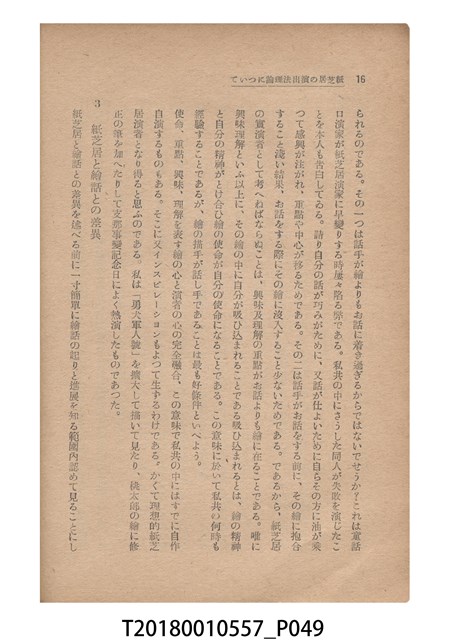 16 ていつに論理法出演の居芝紙
られるのである。その一つは話手が繪よりもお話に着き過ぎるからではないでせうか？これは童話
口演家が紙芝居演家に早變りする時屢々陷る弊である。私共の中にさうした同人が失敗を演じたこ
とを本人も吿白してゐる。詰り自分の話が巧みがために、又話が仕よいために自らその方に油が乘
つて感興が注がれ、重點や中心が移るためである。その二は話手がお話をする前に、その繪に抱合
すること淺い結果、お話をする際にその繪に沒入すること少ないためである。であるから、紙芝居
の實演者として考へねばならぬことは、興味及理解の重點がお話よりも繪に在ることである。唯に
興味理解といふ以上に、その繪の中に自分が吸ひ込まれることである吸ひ込まれるとは、繪の精神
と自分の精神がとけ合ひ繪の使命が自分の使命になることである。この意味に於いて私共の何時も
經驗することであるが、繪の描手が話し手であることは最も好條件といへよう。
使命、重點、興味、理解を表す繪の心と演者の心の完全融合、この意味で私共の中にはすでに自作
自演するものもある。そこに又インスピレーションもよつて生ずるわけである。かくて理想的紙芝
居演者となり得ると思ふのである。私は「勇犬軍人號」を擴大して描いて見たり、桃太郎の繪に修
正の筆を加へたりして支那事變記念日によく熱演したものであつた。
3 紙芝居と繪話との差異
紙芝居と繪話との差異を述べる前に一寸簡單に繪話の起りと發展を知る範圍內認めて見ることにし
T20180010557_P049